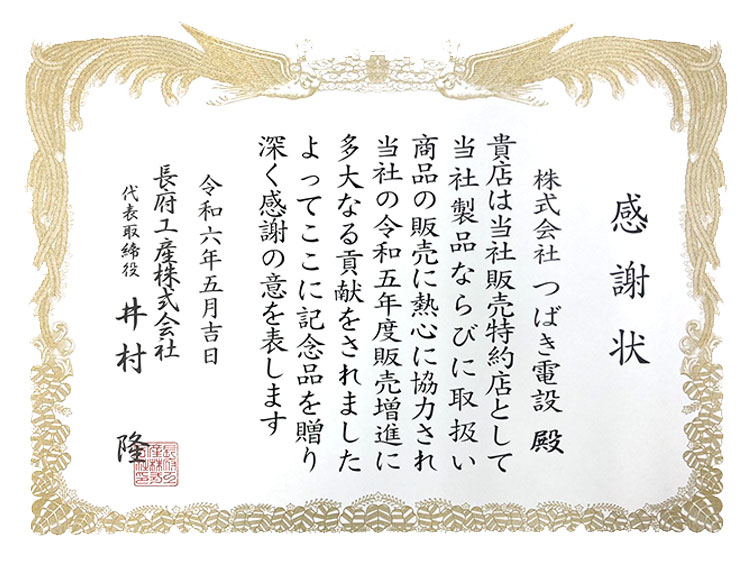 感謝状
株式会社 つばき電設 殿
貴店は当社販売特約店として
当社製品ならびに取扱い
商品の販売に熱心に協力され
当社の令和五年度販売増進に
多大なる貢献をされました
よってここに記念品を贈り
深く感謝の意を表します
令和六年五月吉日
長府工産株式会社
代表取締役 井村 隆